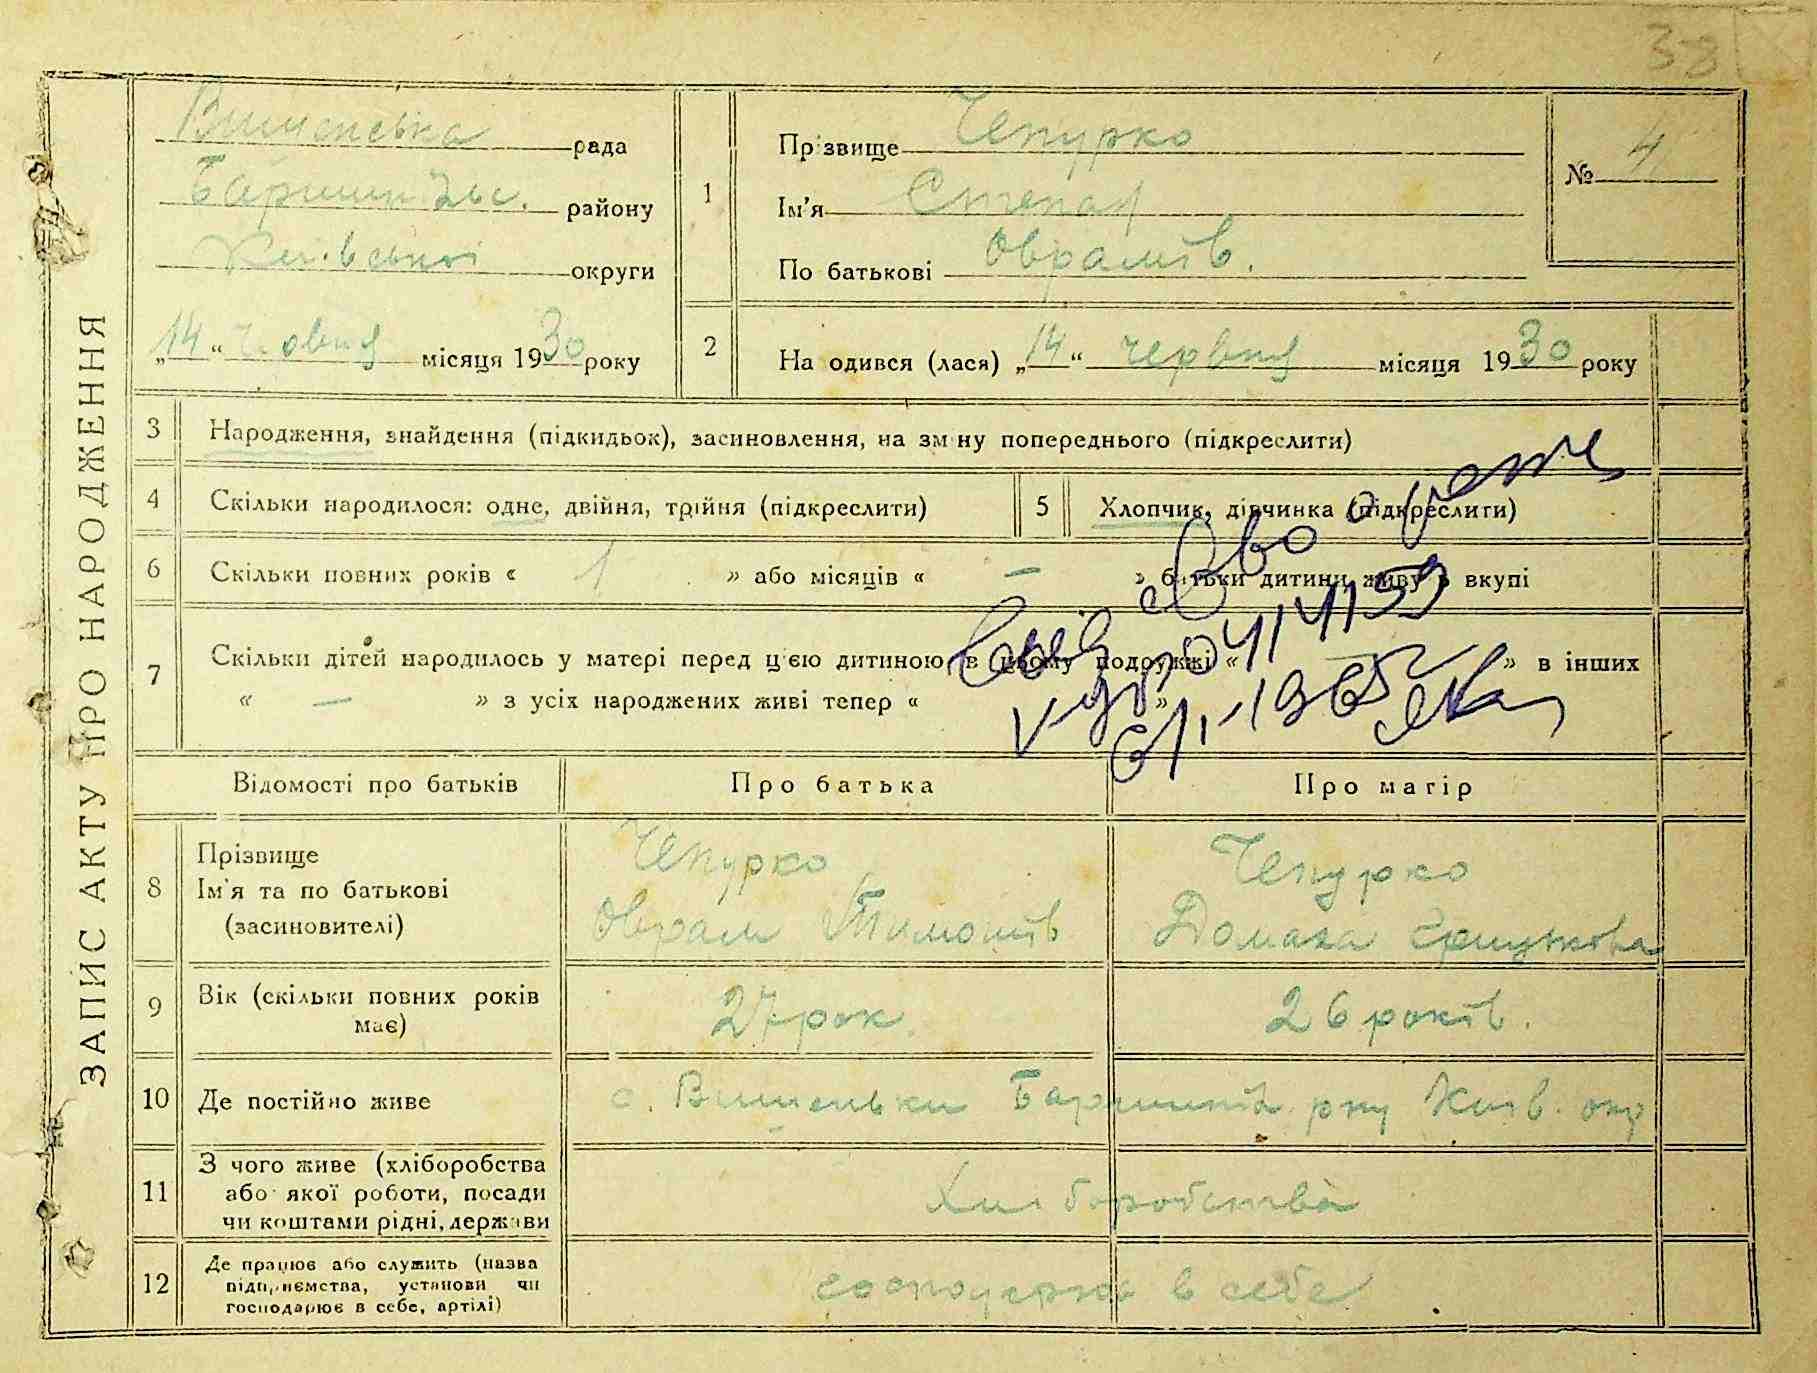 38
ЗАПИС АКТУ ПРО НАРОДЖЕННЯ
Вишенська рада
Баришпільс. району
Київської округи
„14“ червня місяця 1930 року
1
Прізвище Чепурко
Ім'я Степан
По батькові Оврамів.
№ 4
2
На одився (лася) „14“ червня місяця 1930 року
3 Народження, знайдення (підкидьок), засиновлення, на зміну попереднього (підкреслити)
4 Скільки народилося: одне, двійня, трійня (підкреслити)
5 Хлопчик, дівчинка (підкреслити)
6 Скільки повних років « 1 » або місяців « — » батьки дитини живуть вкупі
7 Скільки дітей народилось у матері перед цією дитиною, в цьому подружжі « » в інших
« — » з усіх народжених живі тепер « »
Відомості про батьків
Про батька
Про матір
8 Прізвище
Ім'я та по батькові
(засиновителі)
Чепурко
Оврам Тимошів
Чепурко
Домаха Грицькова
9 Вік (скільки повних років має)
27 рок.
26 років.
10 Де постійно живе
с. Вишеньки Баришпіл. рну Київ. окр
11 З чого живе (хліборобства
або якої роботи, посади
чи коштами рідні, держави
Хліборобства
12 Де працює або служить (назва
підприємства, установи чи
господарює в себе, артілі)
господарює в себе